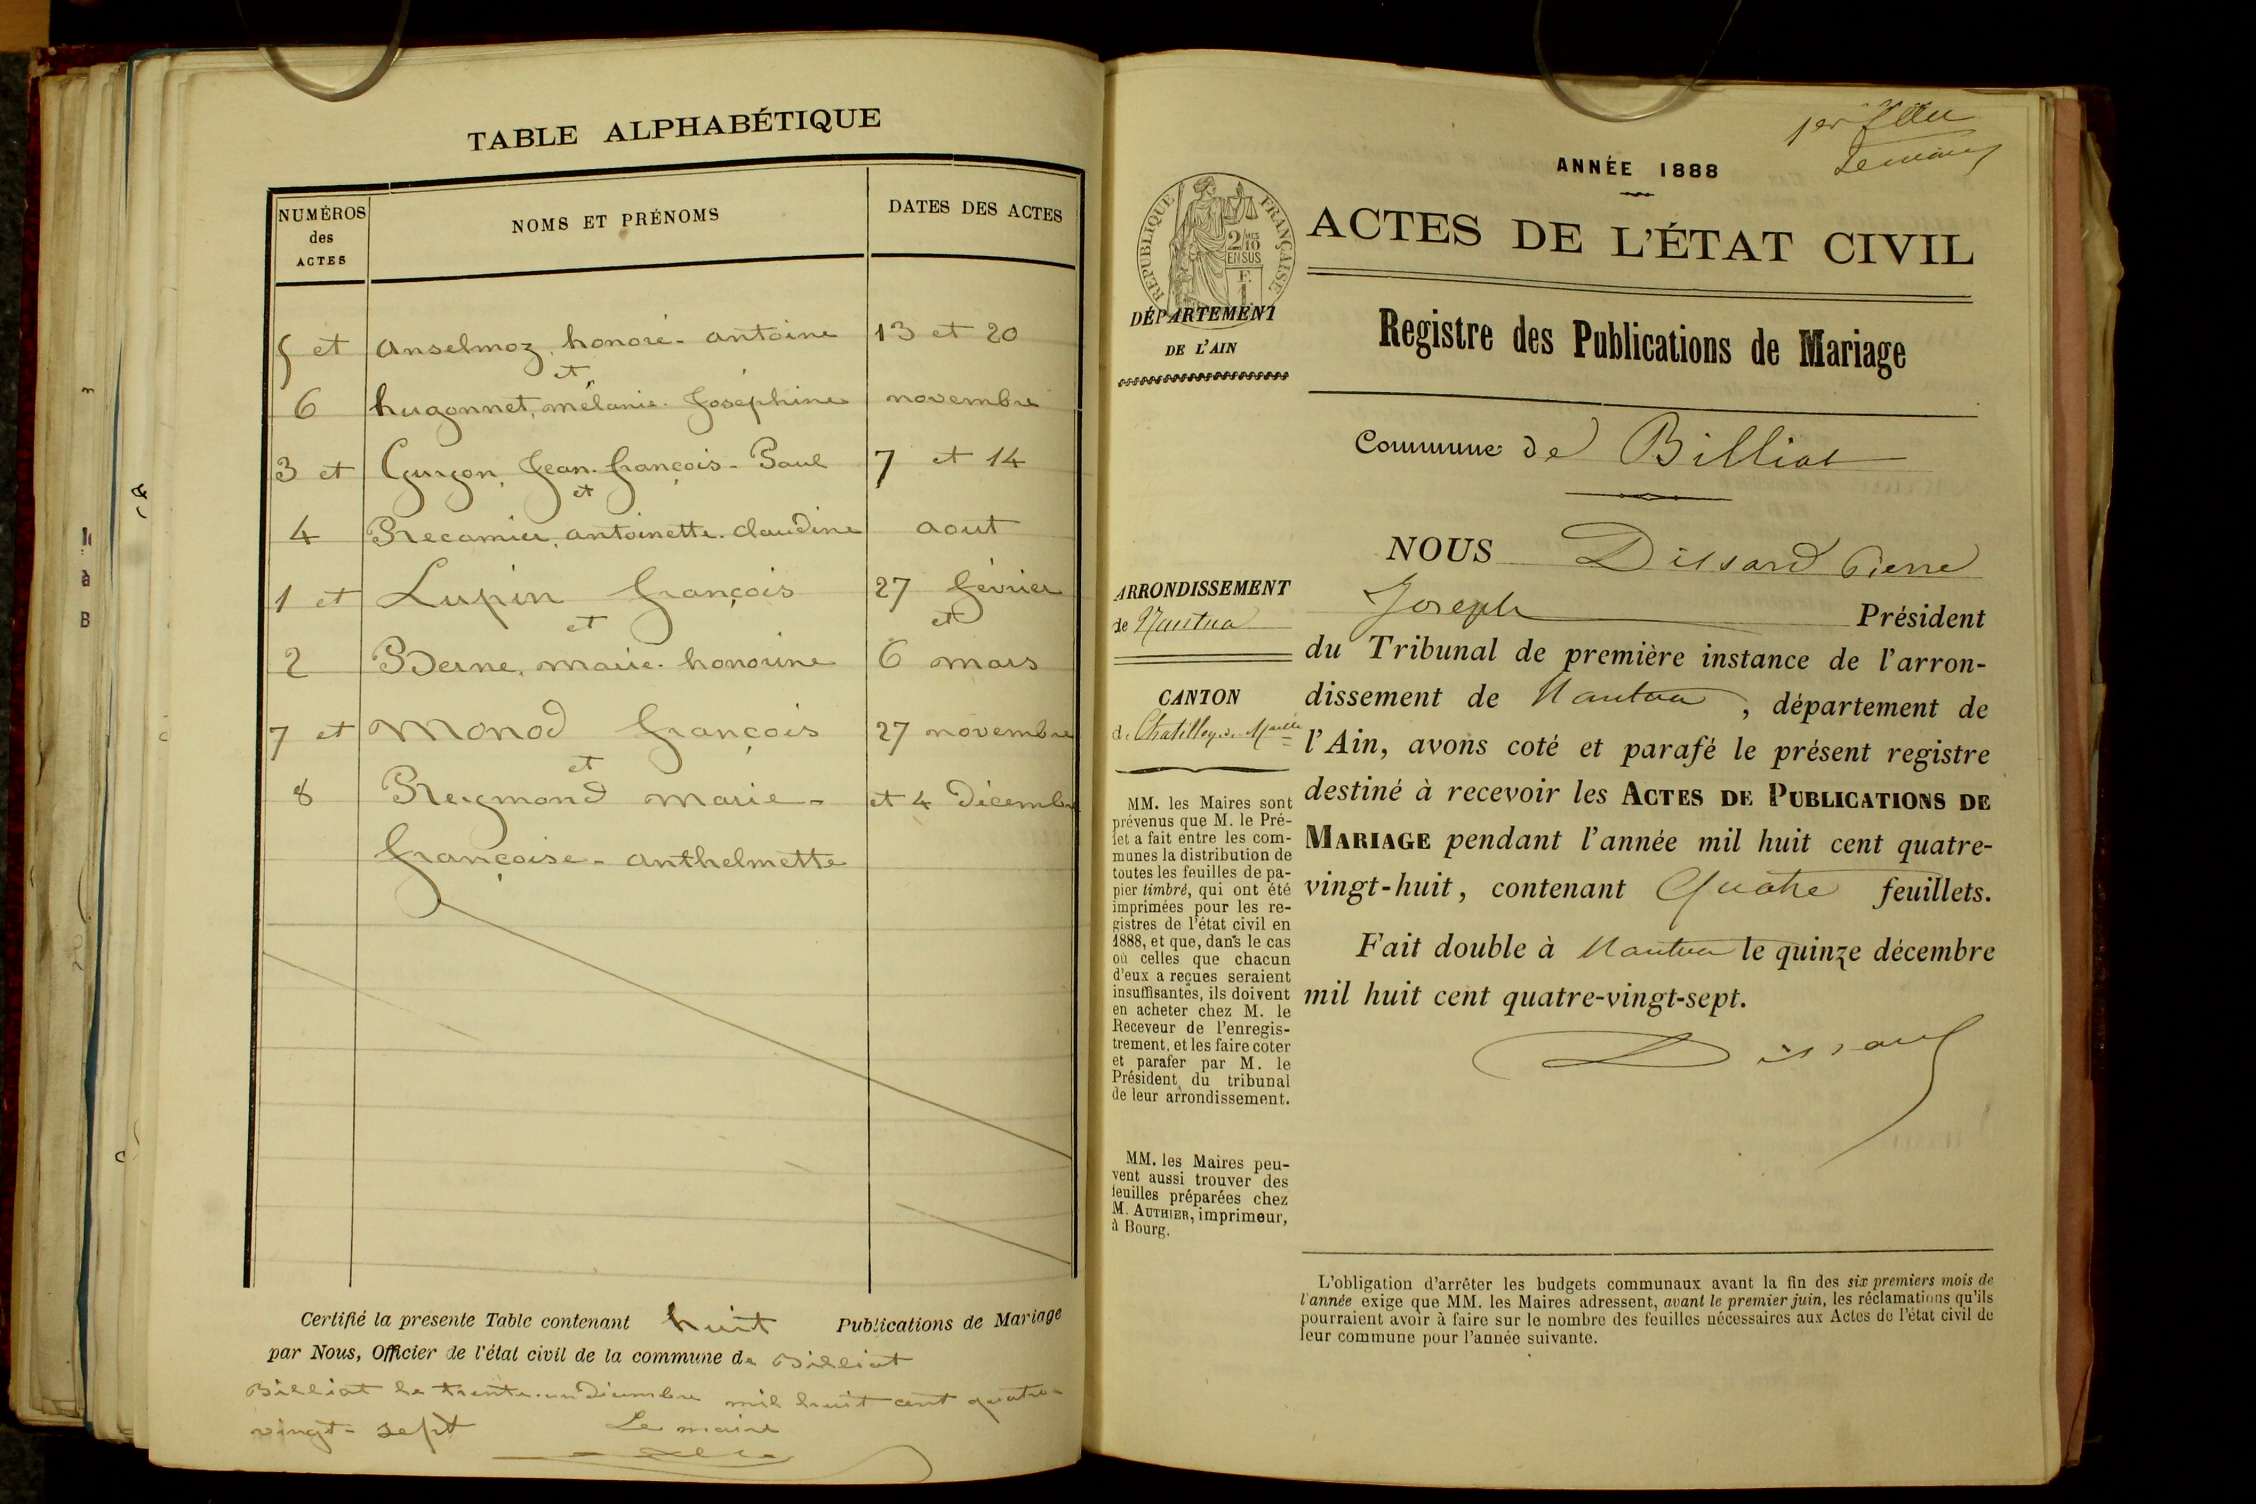 TABLE ALPHABÉTIQUE
NUMÉROS des ACTES
NOMS ET PRÉNOMS
DATES DES ACTES
5 et Anselmoz, honoré-antoine 13 et 20
et
6 hugonnet, mélanie-Joséphine novembre
3 et Guyon, Jean-françois-Paul 7 et 14
et
4 Recamier, antoinette-claudine aout
1 et Lupin françois 27 février
et et
2 Berne, marie-honorine 6 mars
7 et Monod françois 27 novembre
et
8 Reymond marie- et 4 Décembre
françoise-anthelmette
Certifié la presente Table contenant huit Publications de Mariage
par Nous, Officier de l'état civil de la commune de Billiat
Billiat le trente-un Décembre mil huit cent quatre-
vingt-sept Le maire
1er
ANNÉE 1888
ACTES DE L'ÉTAT CIVIL
RÉPUBLIQUE FRANÇAISE
2/10
EN SUS
F.
1
DÉPARTEMENT
DE L'AIN
Registre des Publications de Mariage
Commune de Billiat
ARRONDISSEMENT
de Nantua
CANTON
MM. les Maires sont
prévenus que M. le Pré-
fet a fait entre les com-
munes la distribution de
toutes les feuilles de pa-
pier timbré, qui ont été
imprimées pour les re-
gistres de l'état civil en
1888, et que, dans le cas
où celles que chacun
d'eux a reçues seraient
insuffisantes, ils doivent
en acheter chez M. le
Receveur de l'enregis-
trement, et les faire coter
et parafer par M. le
Président du tribunal
de leur arrondissement.
MM. les Maires peu-
vent aussi trouver des
feuilles préparées chez
M. AUTHIER, imprimeur,
à Bourg.
NOUS Dissard Pierre
Joseph Président
du Tribunal de première instance de l'arron-
dissement de Nantua, département de
l'Ain, avons coté et parafé le présent registre
destiné à recevoir les ACTES DE PUBLICATIONS DE
MARIAGE pendant l'année mil huit cent quatre-
vingt-huit, contenant Quatre feuillets.
Fait double à Nantua le quinze décembre
mil huit cent quatre-vingt-sept.
Dissard
L'obligation d'arrêter les budgets communaux avant la fin des six premiers mois de
l'année exige que MM. les Maires adressent, avant le premier juin, les réclamations qu'ils
pourraient avoir à faire sur le nombre des feuilles nécessaires aux Actes de l'état civil de
leur commune pour l'année suivante.